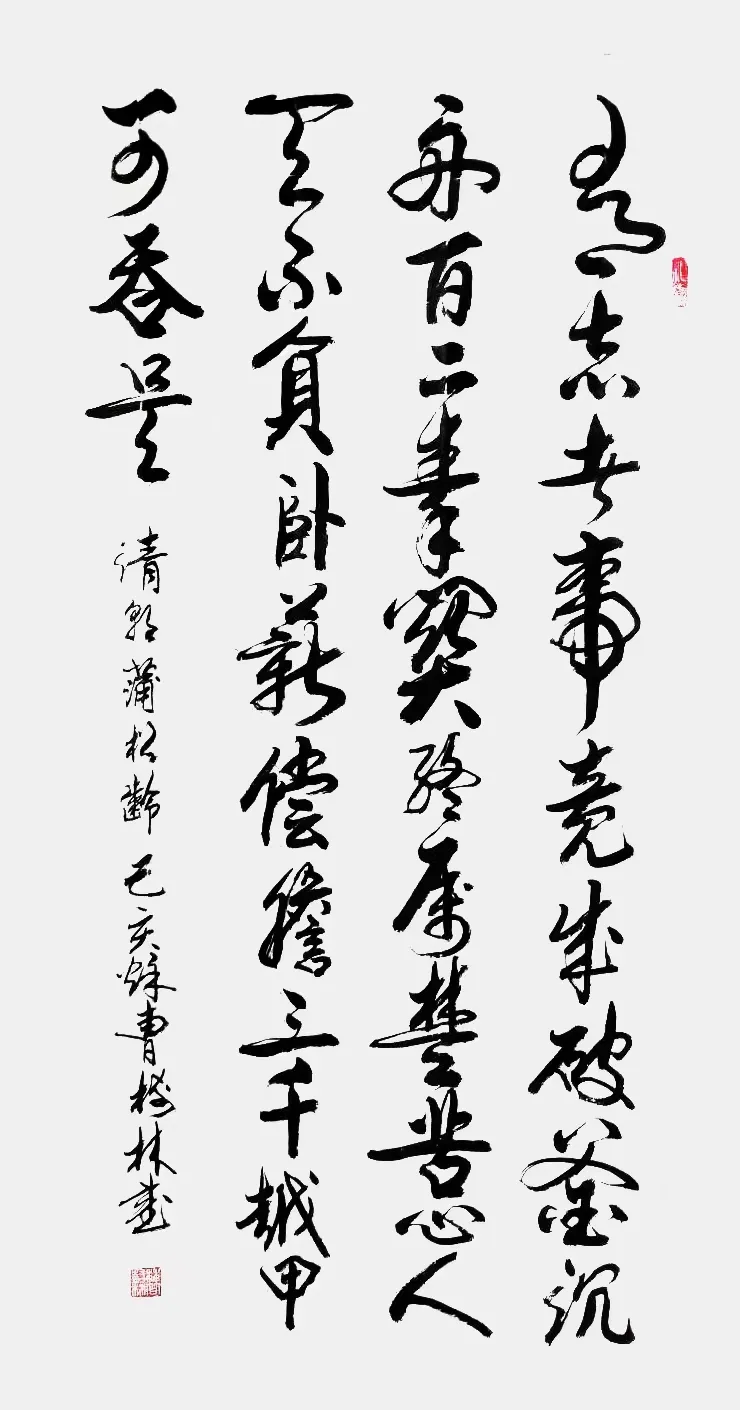 有志者事竟成破釜沉
舟百二秦關终属楚苦心人
天不負卧薪偿膽三千越甲
可吞吴
清朝蒲松齡 己亥秋曹樹林書